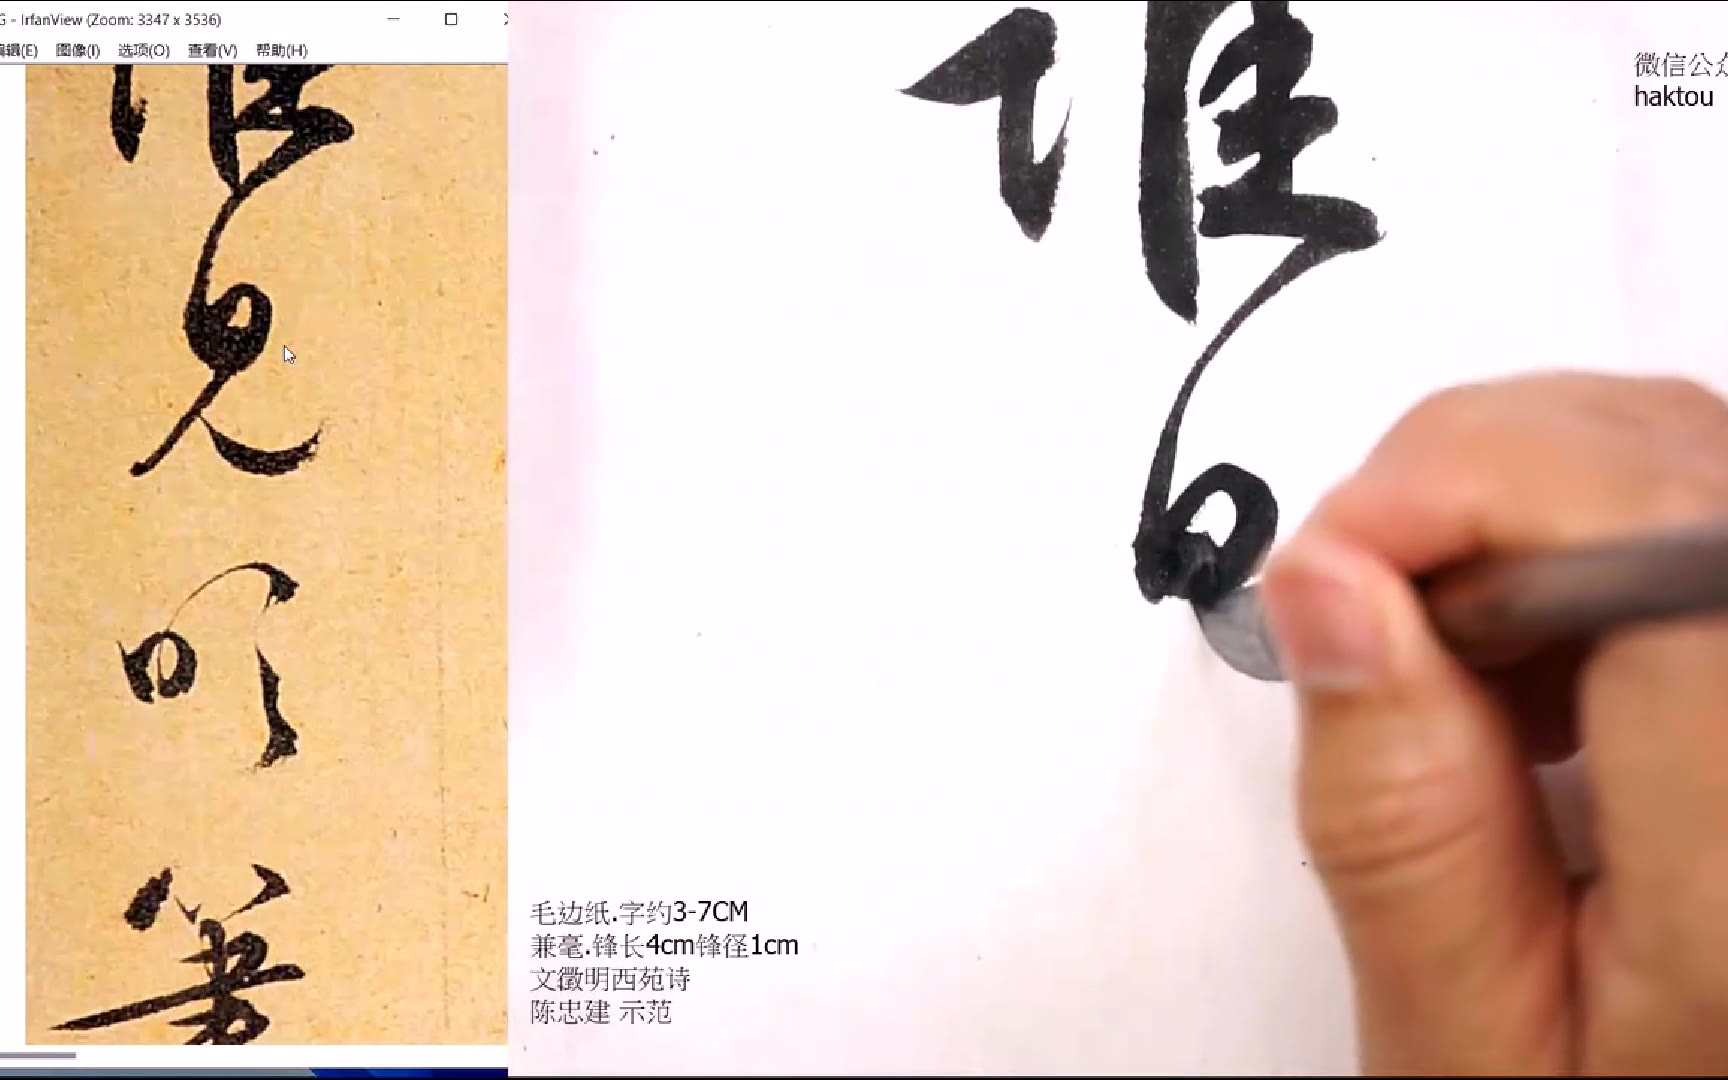 G - IrfanView (Zoom: 3347 x 3536)
编辑(E) 图像(I) 选项(O) 查看(V) 帮助(H)
誰
見
誰
微信公众
haktou
毛边纸.字约3-7CM
兼毫.锋长4cm锋径1cm
文徵明西苑诗
陈忠建 示范